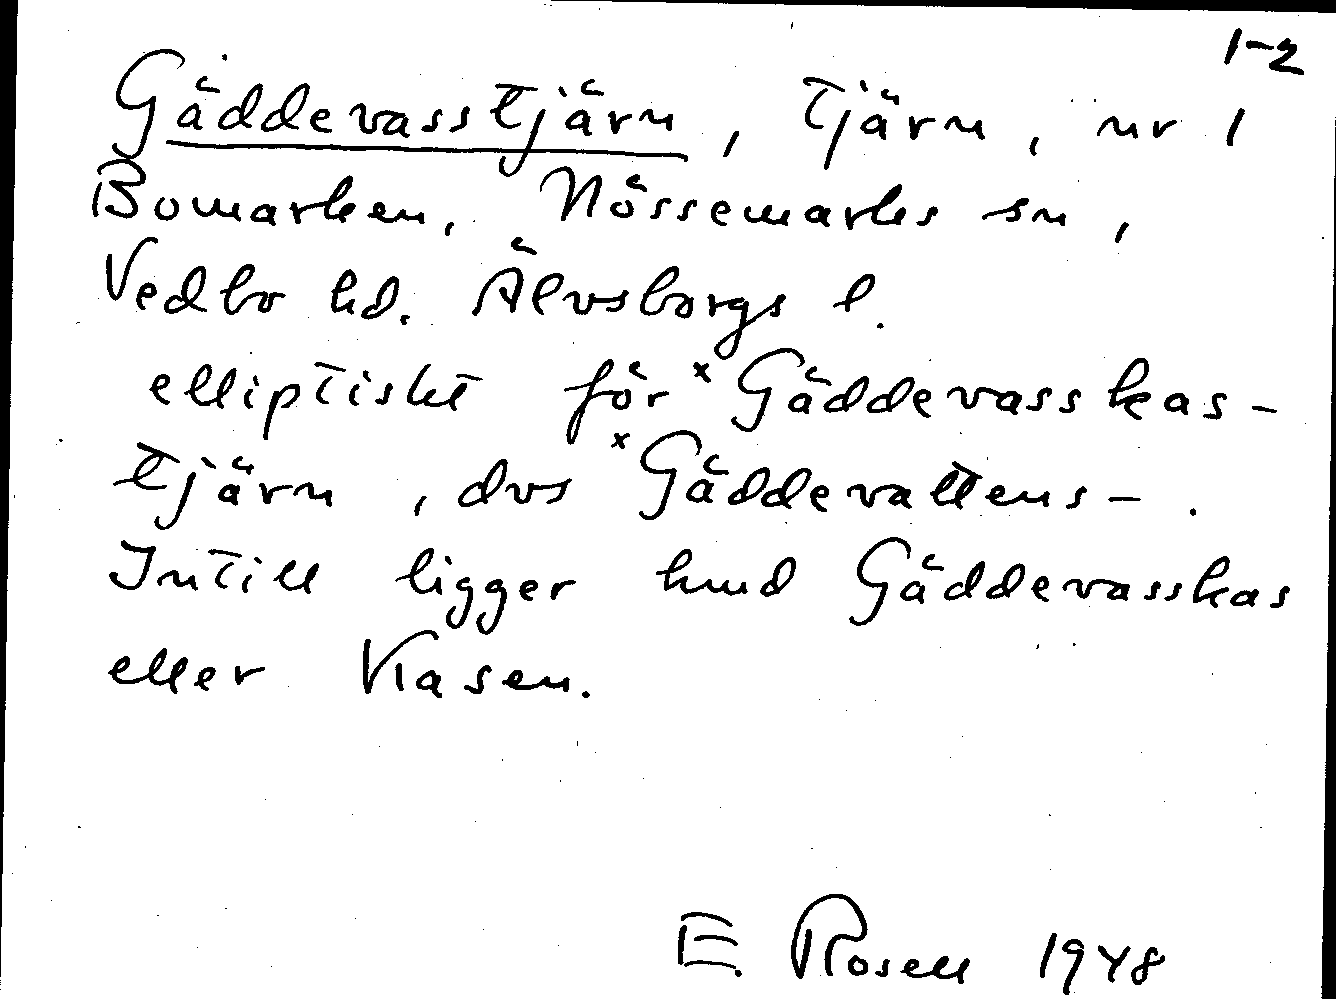 1-2
Gäddevasstjärn, Tjärn, nr 1
Bomarken, Nössemarks sn,
Vedbo hd. Älvsborgs l.
elliptiskt för ˣGäddevasskas-
tjärn, dvs ˣGäddevattens-.
Intill ligger hmd Gäddevasskas
eller Kasen.
E. Rosell 1948